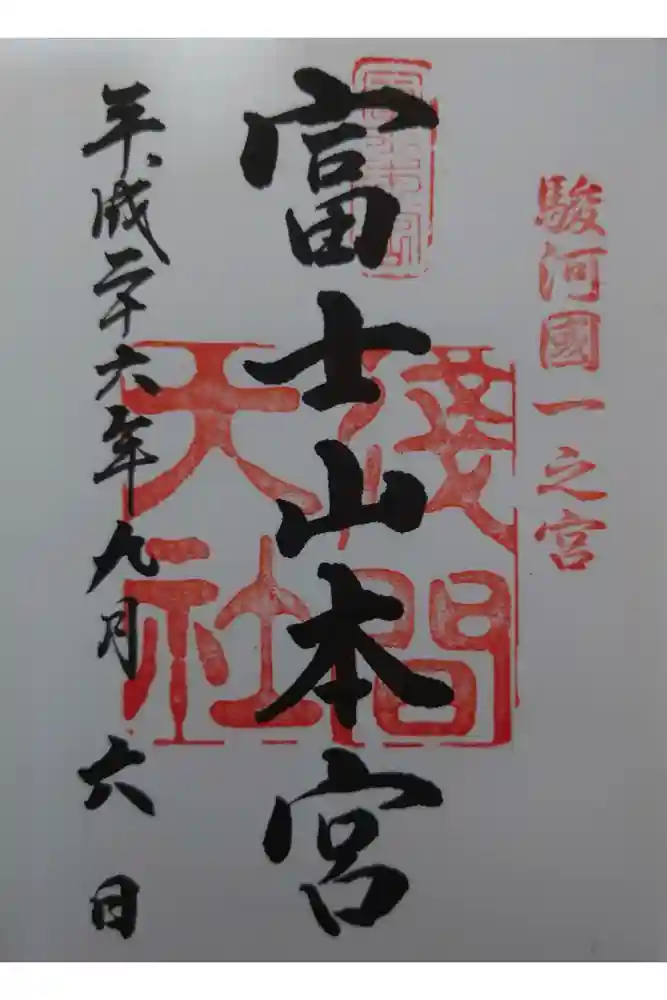 駿河國一之宮
富士山本宮
淺間
大社
平成二十六年九月六日